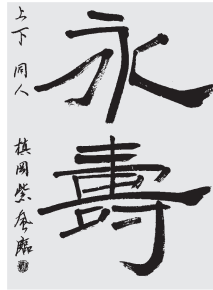 永壽
上下同人
槙岡紫風臨